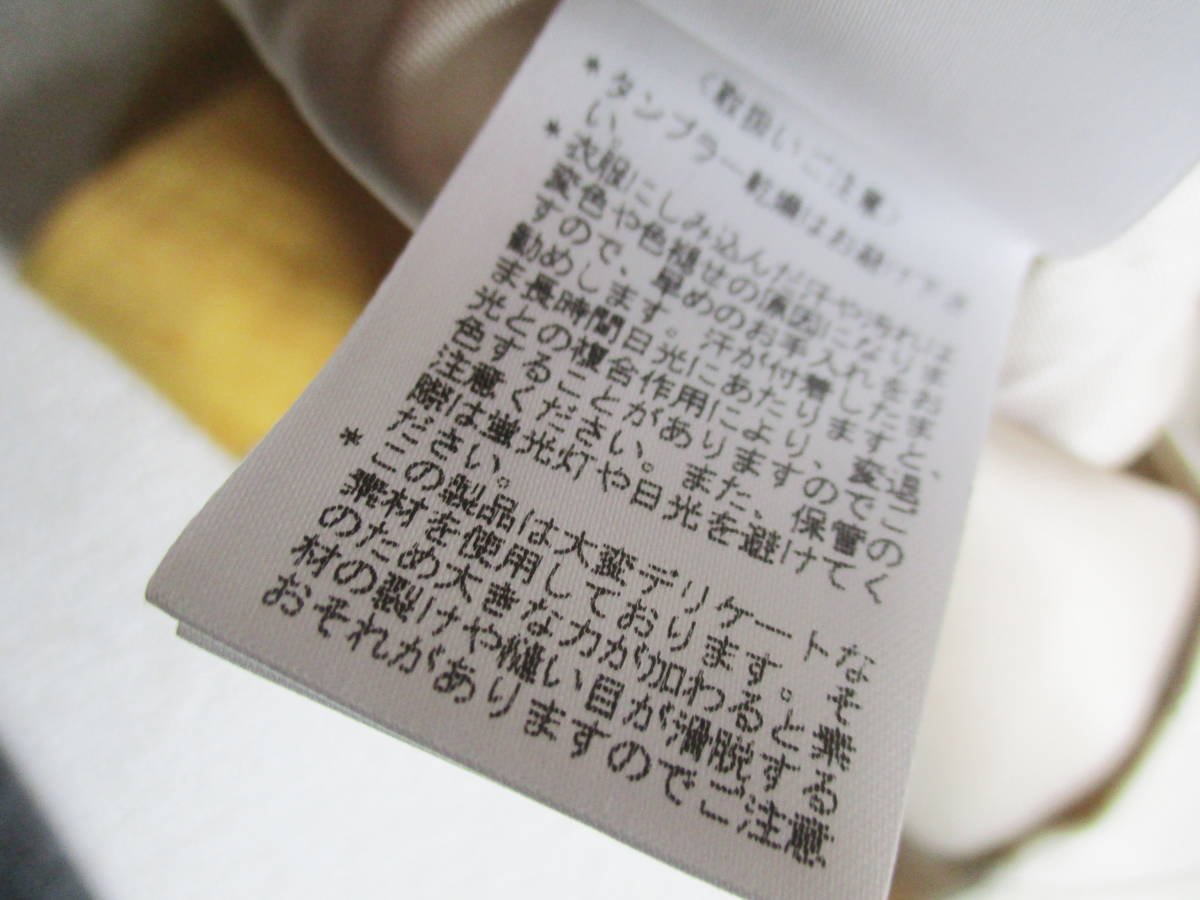 （取扱いご注意）
＊タンブラー乾燥はお避け下さ
い。
＊衣服にしみ込んだ汗や汚れは
変色や色褪せの原因になりま
すので、早めのお手入れをお
勧めします。汗が付着したま
ま長時間日光にあたりますと、
光との複合作用により、変退
色することがありますのでご
注意ください。また、保管の
際は蛍光灯や日光を避けてく
ださい。
＊この製品は大変デリケートな
素材を使用しております。そ
のため大きな力が加わると素
材の裂けや縫い目が滑脱する
おそれがありますのでご注意